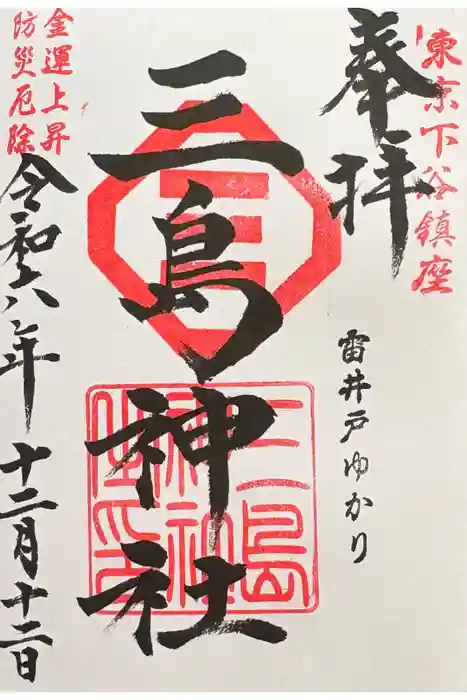 東京下谷鎮座
奉拝
雷井戸ゆかり
三島神社
三島神社
金運上昇
防災厄除
令和六年十二月十二日